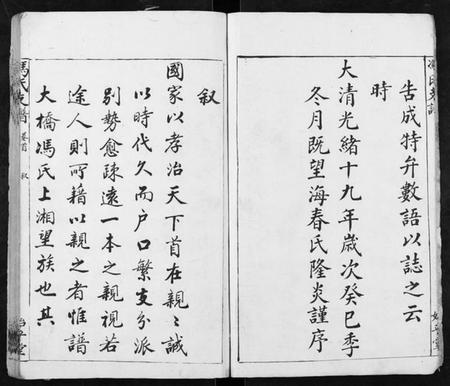 告成特弁數語以誌之云
時
大清光緒十九年歲次癸巳季
冬月既望海春氏隆炎謹序
馮氏支譜
叙
叙
國家以孝治天下首在親親誠
以時代久而户口繁支分派
別勢愈疎遠一本之親視若
途人則所藉以親之者惟譜
大橋馮氏上湘望族也其